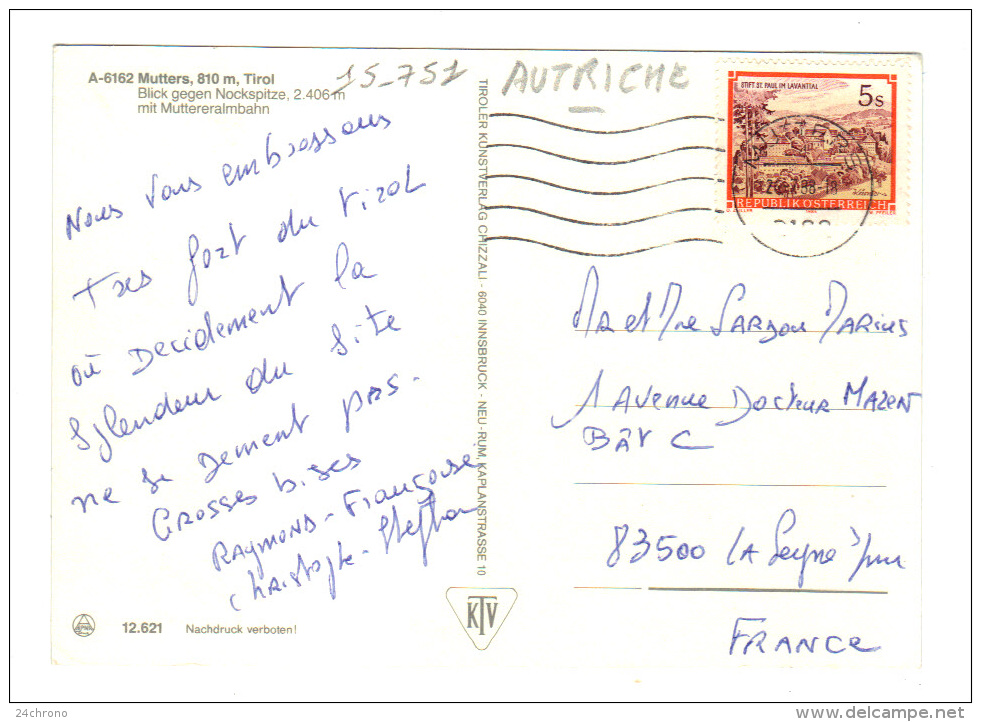 A-6162 Mutters, 810 m, Tirol
Blick gegen Nockspitze, 2.406 m
mit Muttereralmbahn
15_751
AUTRICHE
Nous vous embrassons
tres fort du tirol
où Decidement la
Splendeur du Site
ne se Dement pas.
Grosses bises
Raymond - Françoise
christophe - Stephan
TIROLER KUNSTVERLAG CHIZZALI · 6040 INNSBRUCK - NEU-RUM, KAPLANSTRASSE 10
KTV
STIFT ST. PAUL IM LAVANTTAL
5s
REPUBLIK ÖSTERREICH
Mr et Mme SARDOU MARIUS
1 Avenue Docteur MAZEN
BÂT C
83500 LA Seyne s/mer
FRANCE
12.621 Nachdruck verboten!
24chrono
www.delcampe.net